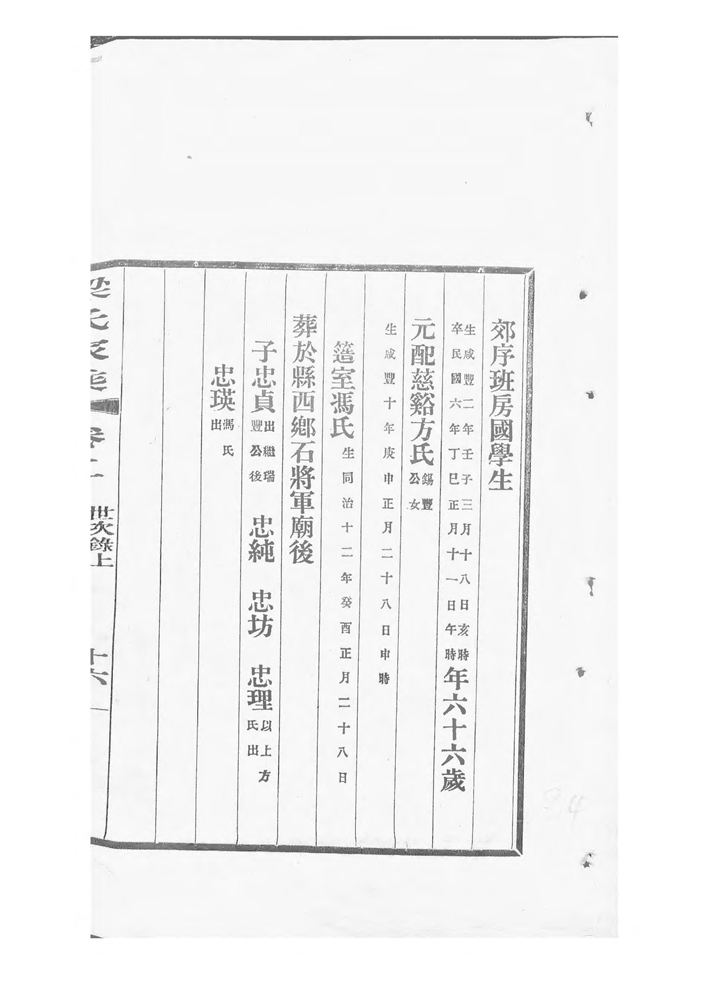 郊序班房國學生
生咸豐二年壬子三月十八日亥時
卒民國六年丁巳正月十一日午時
年六十六歲
元配慈谿方氏 錫豐公女
生咸豐十年庚申正月二十八日申時
簉室馮氏 生同治十二年癸酉正月二十八日
葬於縣西鄉石將軍廟後
子忠貞 出繼瑞豐公後 忠純 忠坊 忠理 以上方氏出
忠瑛 馮氏出
世次錄上
十六